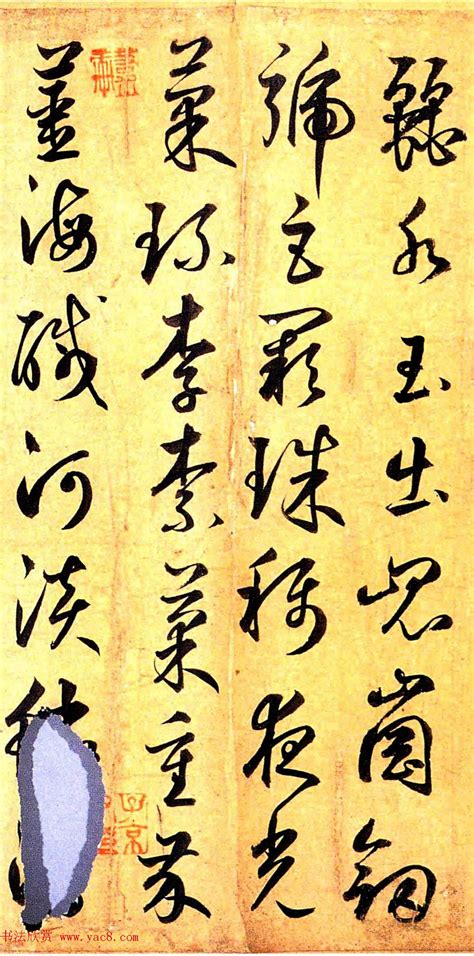 麗水玉出崑崗釼
號巨闕珠稱夜光
菓珍李柰菜重芥
薑海醎河淡
书法欣赏 www.yac8.com